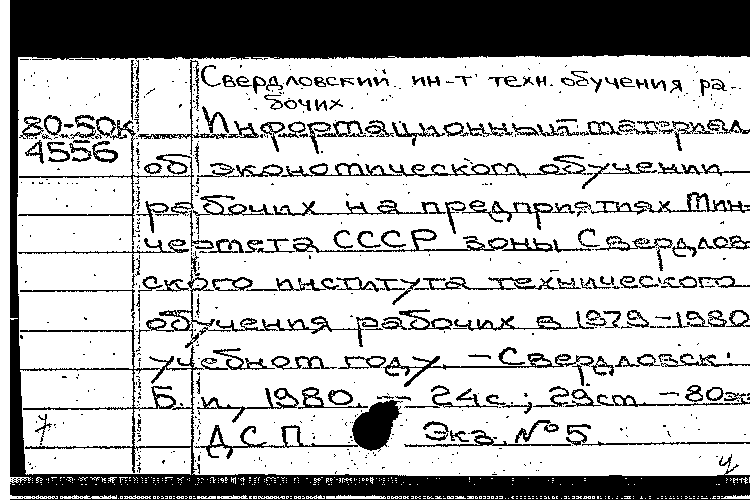 Свердловский ин-т техн. обучения ра-
бочих
80-50к Информационный материал
4556 об экономическом обучении
рабочих на предприятиях Мин-
чермета СССР зоны Свердлов-
ского института технического
обучения рабочих в 1979-1980
учебном году. - Свердловск:
Б. и., 1980. - 24с.; 29см. - 80эк
Д С П. Экз. №5.